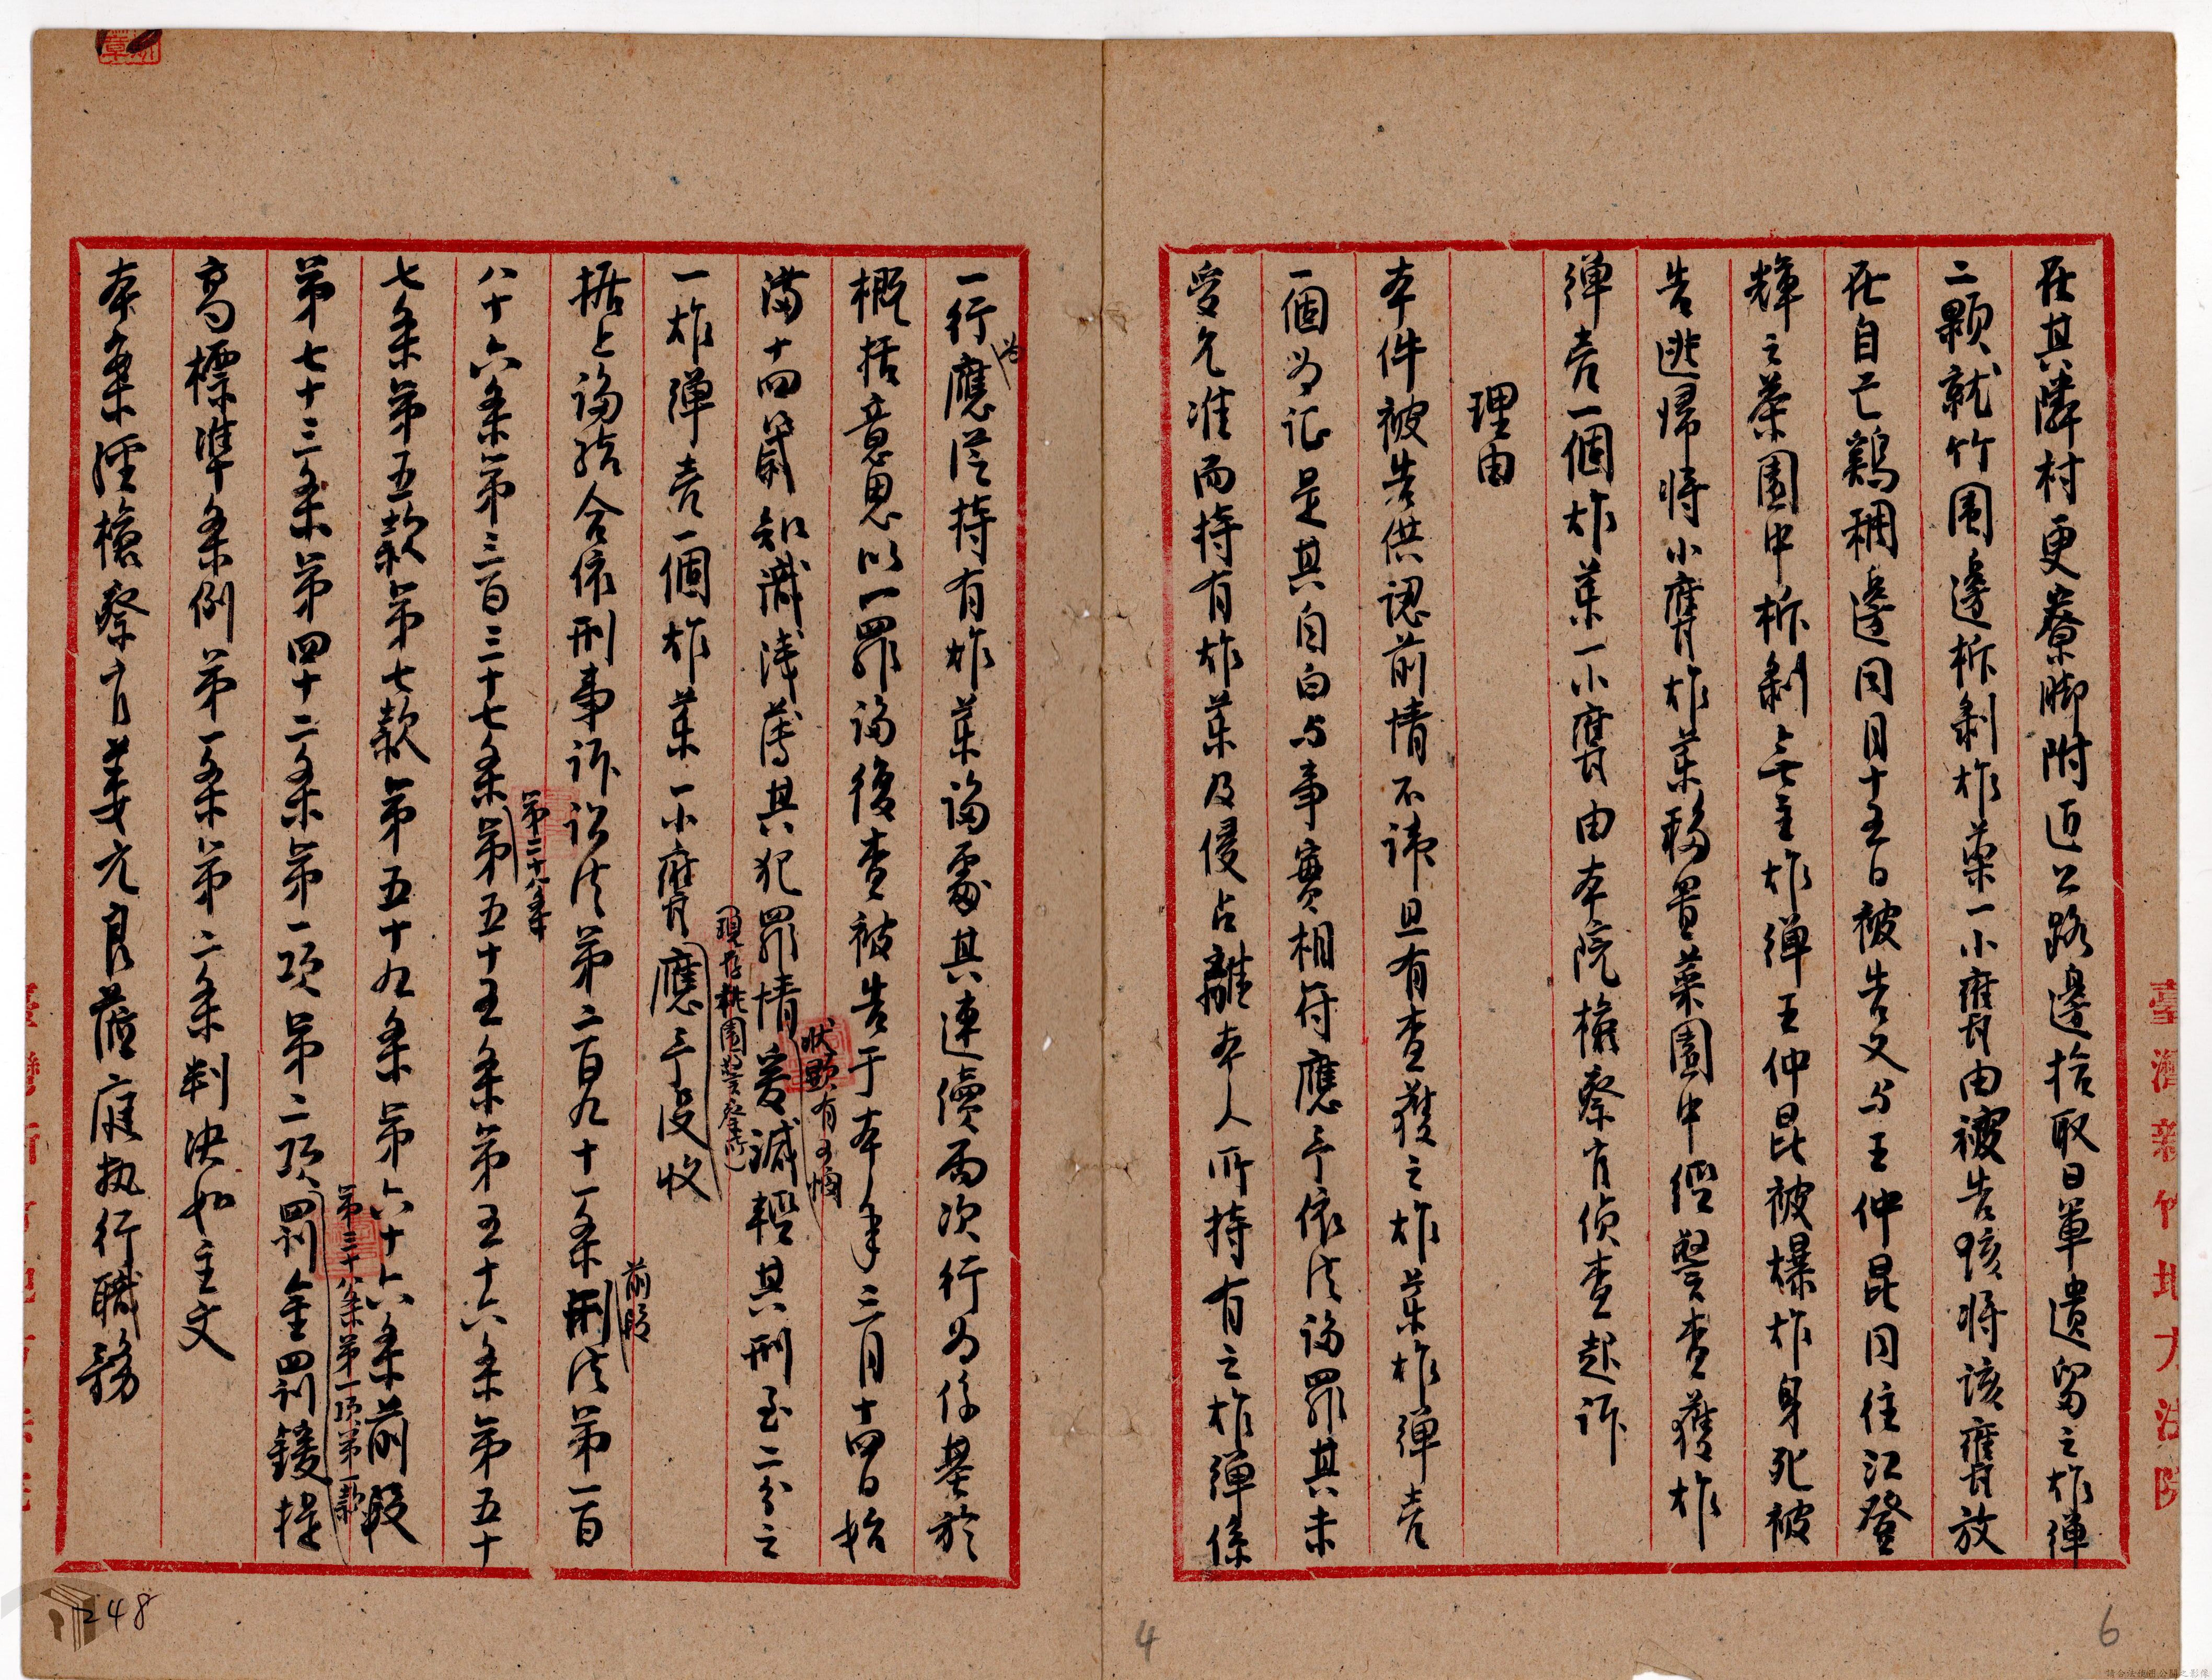 在其隣村更寮脚附近公路邊拾取日軍遺留之炸彈
二顆就竹围邊拆剝炸葯一小甕由被告孩将該甕放
在自己鷄稠邊同月十五日被告又与王仲昆同往江登
輝之菜園中拆剝無主炸弾王仲昆被爆炸身死被
告逃帰将小甕炸葯移置菜園中經警查獲炸
弾壳一個炸葯一小甕由本院檢察官偵查起訴
理由
本件被告供認前情不諱且有查獲之炸葯炸彈壳
一個为证是其自白与事實相符應予依法論罪其未
受允准而持有炸葯及侵占離本人所持有之炸弾係
一行為應從持有炸葯論處其連續兩次行为係基於
概括意思以一罪論後查被告于本年三月十四日始
满十四歲知識浅薄其犯罪情狀顯有可憫爰減輕其刑至二分之
一炸弹壳一個炸葯一小甕(現存桃園警察所)應予没收
据上論结合依刑事訴訟法第二百九十一条前段刑法第一百
八十六条第三百三十七条第二十八条第五十五条第五十六条第五十
七条第五款第七款第五十九条第六十六条前段
第七十三条第四十二条第一項第二項第三十八条第一項第一款罰金罰鍰提
高標準条例第一条第二条判决如主文
本案經檢察官姜元良蒞庭执行職務
臺灣新竹地方法院
248
4
6